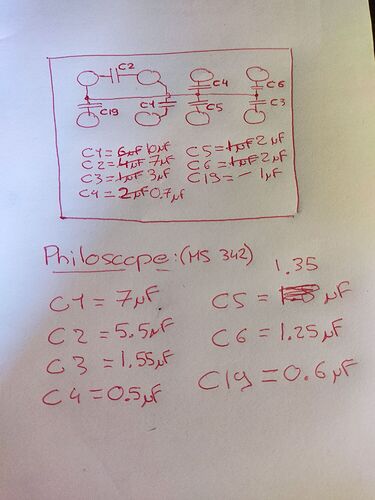 C2
C4
C6
C19
C1
C5
C3
C1 = 6µF 10µF
C5 = 1µF 2µF
C2 = 4µF 7µF
C6 = 1µF 2µF
C3 = 1µF 3µF
C19 = - 1µF
C4 = 2µF 0.7µF
Philoscope: (MS 342)
1.35
C1 = 7µF
C5 = µF
C2 = 5.5µF
C6 = 1.25µF
C3 = 1.55µF
C4 = 0.5µF
C19 = 0.6µF